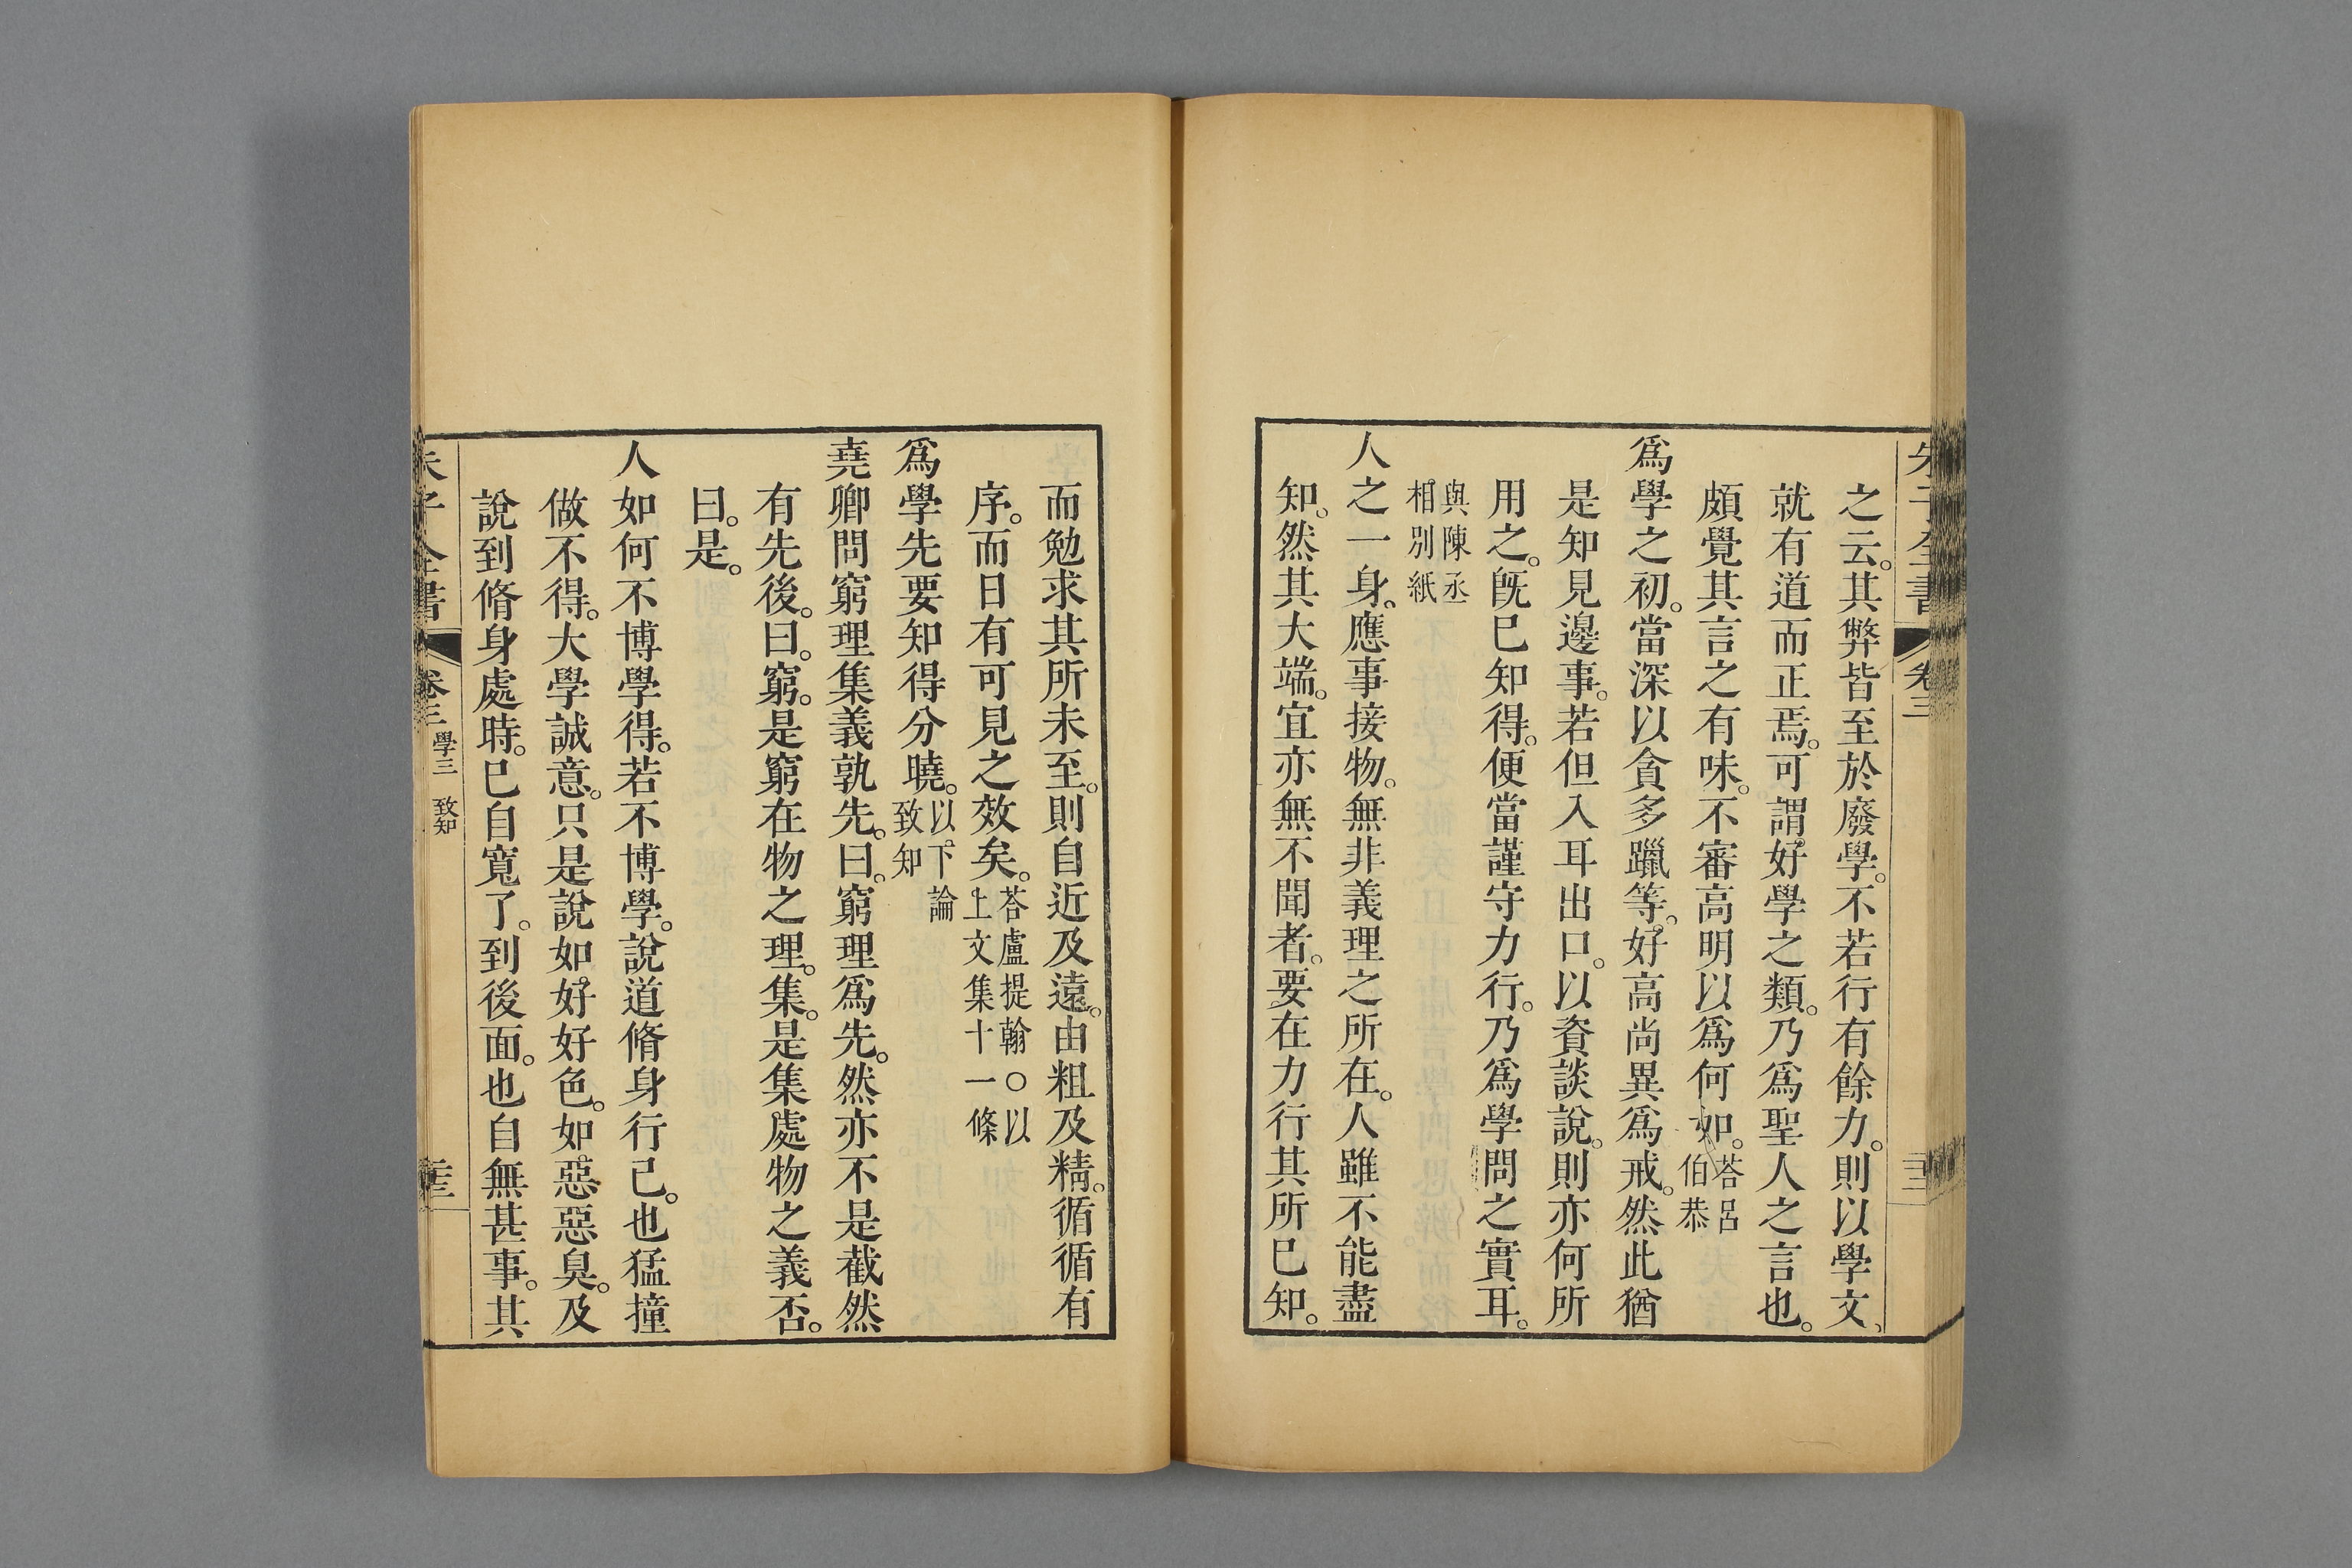 之云。其弊皆至於廢學。不若行有餘力。則以學文、
就有道而正焉。可謂好學之類。乃爲聖人之言也。
頗覺其言之有味。不審高明以爲何如。答呂伯恭
爲學之初。當深以貪多躐等。好高尚異爲戒。然此猶
是知見邊事。若但入耳出口。以資談說。則亦何所
用之。旣已知得。便當謹守力行。乃爲學問之實耳。
與陳丞相別紙
人之一身。應事接物。無非義理之所在。人雖不能盡
知。然其大端。宜亦無不聞者。要在力行其所已知。
而勉求其所未至。則自近及遠。由粗及精。循循有
序。而日有可見之效矣。答盧提翰○以上文集十一條
爲學先要知得分曉。以下論致知
堯卿問窮理集義孰先。曰。窮理爲先。然亦不是截然
有先後。曰。窮。是窮在物之理。集。是集處物之義否。
曰。是。
人如何不博學得。若不博學。說道脩身行己。也猛撞
做不得。大學誠意。只是說如好好色。如惡惡臭。及
說到脩身處時。已自寬了。到後面。也自無甚事。其
朱子全書
卷三 學三 致知